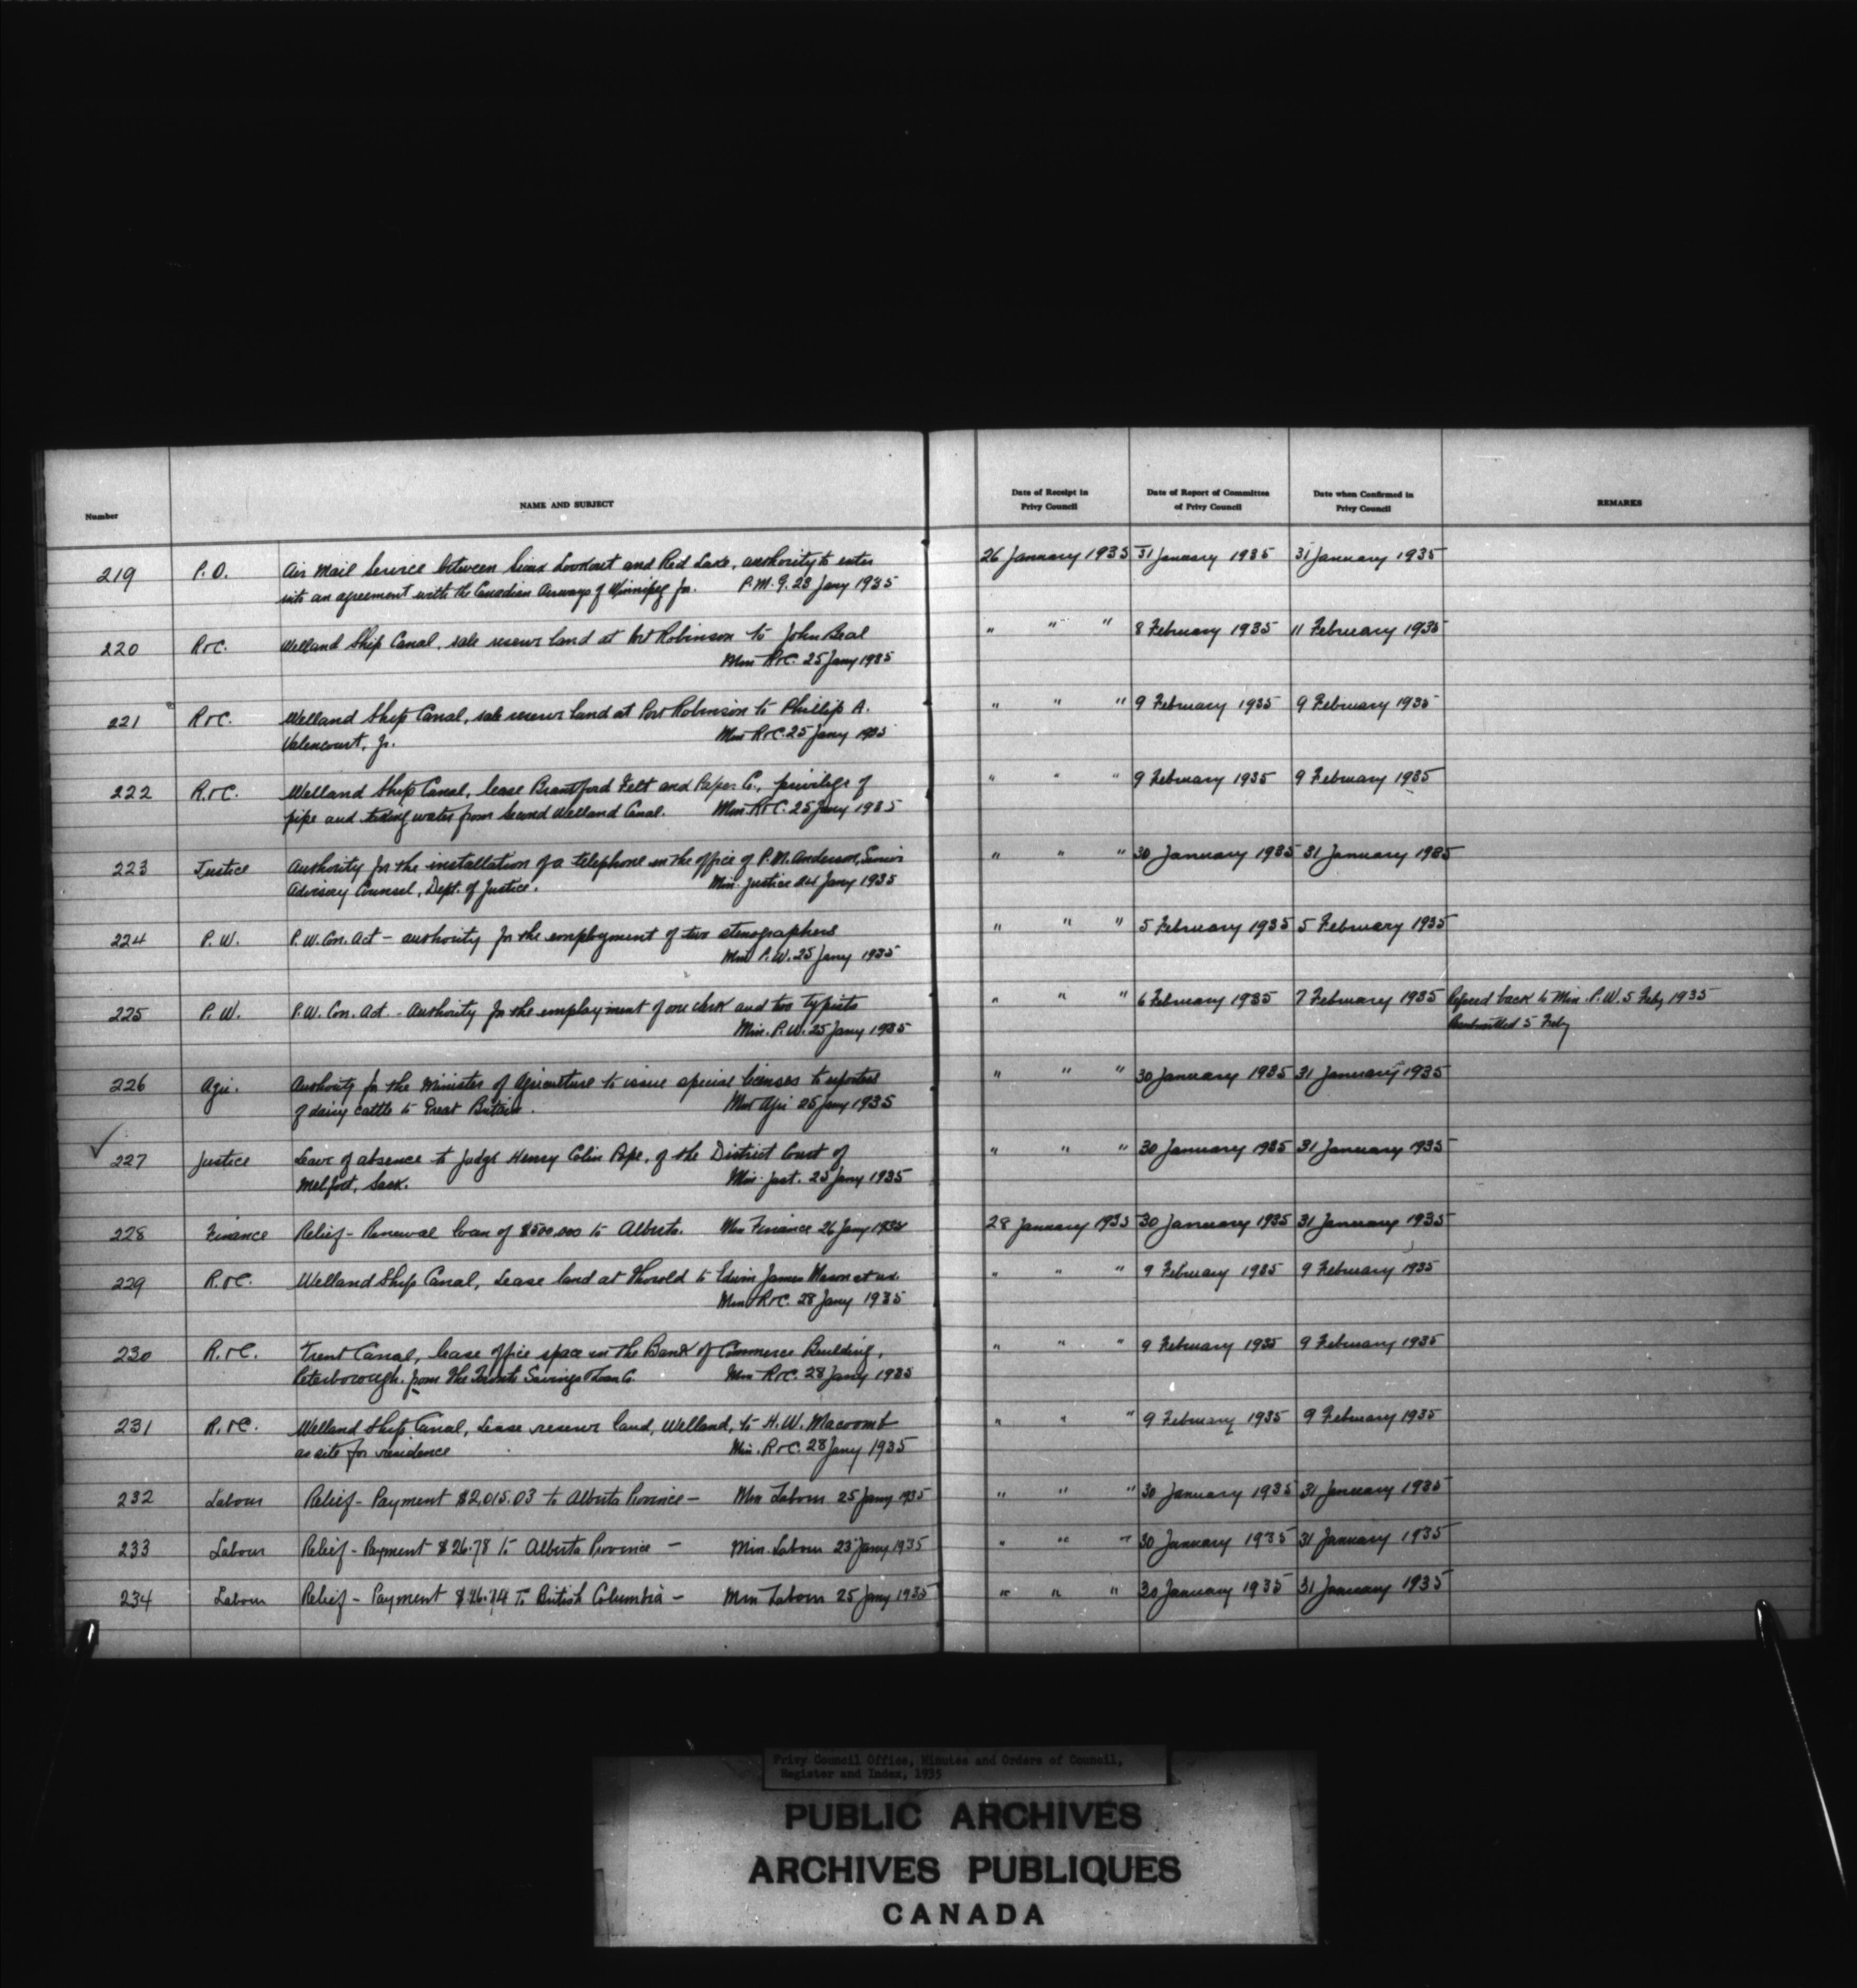 Number
NAME AND SUBJECT
Date of Receipt in Privy Council
Date of Report of Committee of Privy Council
Date when Confirmed in Privy Council
REMARKS
219 P.O. Air Mail Service between Sioux Lookout and Red Lake, authority to enter 26 January 1935 31 January 1935 31 January 1935
into an agreement with the Canadian Airways of Winnipeg for. P.M.G. 23 Jany 1935
220 R&C. Welland Ship Canal, sale reserve land at Port Robinson to John Beal " " " 8 February 1935 11 February 1935
Min R&C. 25 Jany 1935
221 R&C. Welland Ship Canal, sale reserve land at Port Robinson to Phillip A. " " " 9 February 1935 9 February 1935
Valencourt, Jr. Min R&C. 25 Jany 1935
222 R.&C. Welland Ship Canal, lease Brantford Felt and Paper Co., privilege of " " " 9 February 1935 9 February 1935
pipe and taking water from Second Welland Canal. Min R&C. 25 Jany 1935
223 Justice Authority for the installation of a telephone in the office of P.M. Anderson, Senior " " " 30 January 1935 31 January 1935
Advisory Counsel, Dept. of Justice. Min. Justice 24 Jany 1935
224 P.W. P.W. Con. Act - authority for the employment of two stenographers " " " 5 February 1935 5 February 1935
Min P.W. 25 Jany 1935
225 P.W. P.W. Con. Act - Authority for the employment of one clerk and two typists " " " 6 February 1935 7 February 1935 Refered back to Min. P.W. 5 Feby 1935
Min. P.W. 25 Jany 1935 Resubmitted 5 Feby
226 Agri. Authority for the Minister of Agriculture to issue special licenses to exporters " " " 30 January 1935 31 January 1935
of dairy cattle to Great Britain. Min Agri 25 Jany 1935
227 Justice Leave of absence to Judge Henry Colin Pope, of the District Court of " " " 30 January 1935 31 January 1935
Melfort, Sask. Min. Just. 25 Jany 1935
228 Finance Relief - Renewal loan of $500,000 to Alberta. Min Finance 26 Jany 28 January 1935 30 January 1935 31 January 1935
229 R.&C. Welland Ship Canal, Lease land at Thorold to Edwin James Mason et ux. " " " 9 February 1935 9 February 1935
Min R&C. 28 Jany 1935
230 R.&C. Trent Canal, lease office space in the Bank of Commerce Building, " " " 9 February 1935 9 February 1935
Peterborough. from The Toronto Savings & Loan Co. Min R&C. 28 Jany 1935
231 R.&C. Welland Ship Canal, Lease reserve land, Welland, to H.W. Macoomb " " " 9 February 1935 9 February 1935
as site for residence Min. R&C. 28 Jany 1935
232 Labour Relief - Payment $2,015.03 to Alberta Province - Min Labour 25 Jany 1935 " " " 30 January 1935 31 January 1935
233 Labour Relief - Payment $26.78 to Alberta Province - Min. Labour 23 Jany 1935 " " " 30 January 1935 31 January 1935
234 Labour Relief - Payment to British Columbia - Min Labour 25 Jany 1935 " " " 30 January 1935 31 January 1935
Privy Council Office, Minutes and Orders of Council,
Register and Index, 1935
PUBLIC ARCHIVES
ARCHIVES PUBLIQUES
CANADA